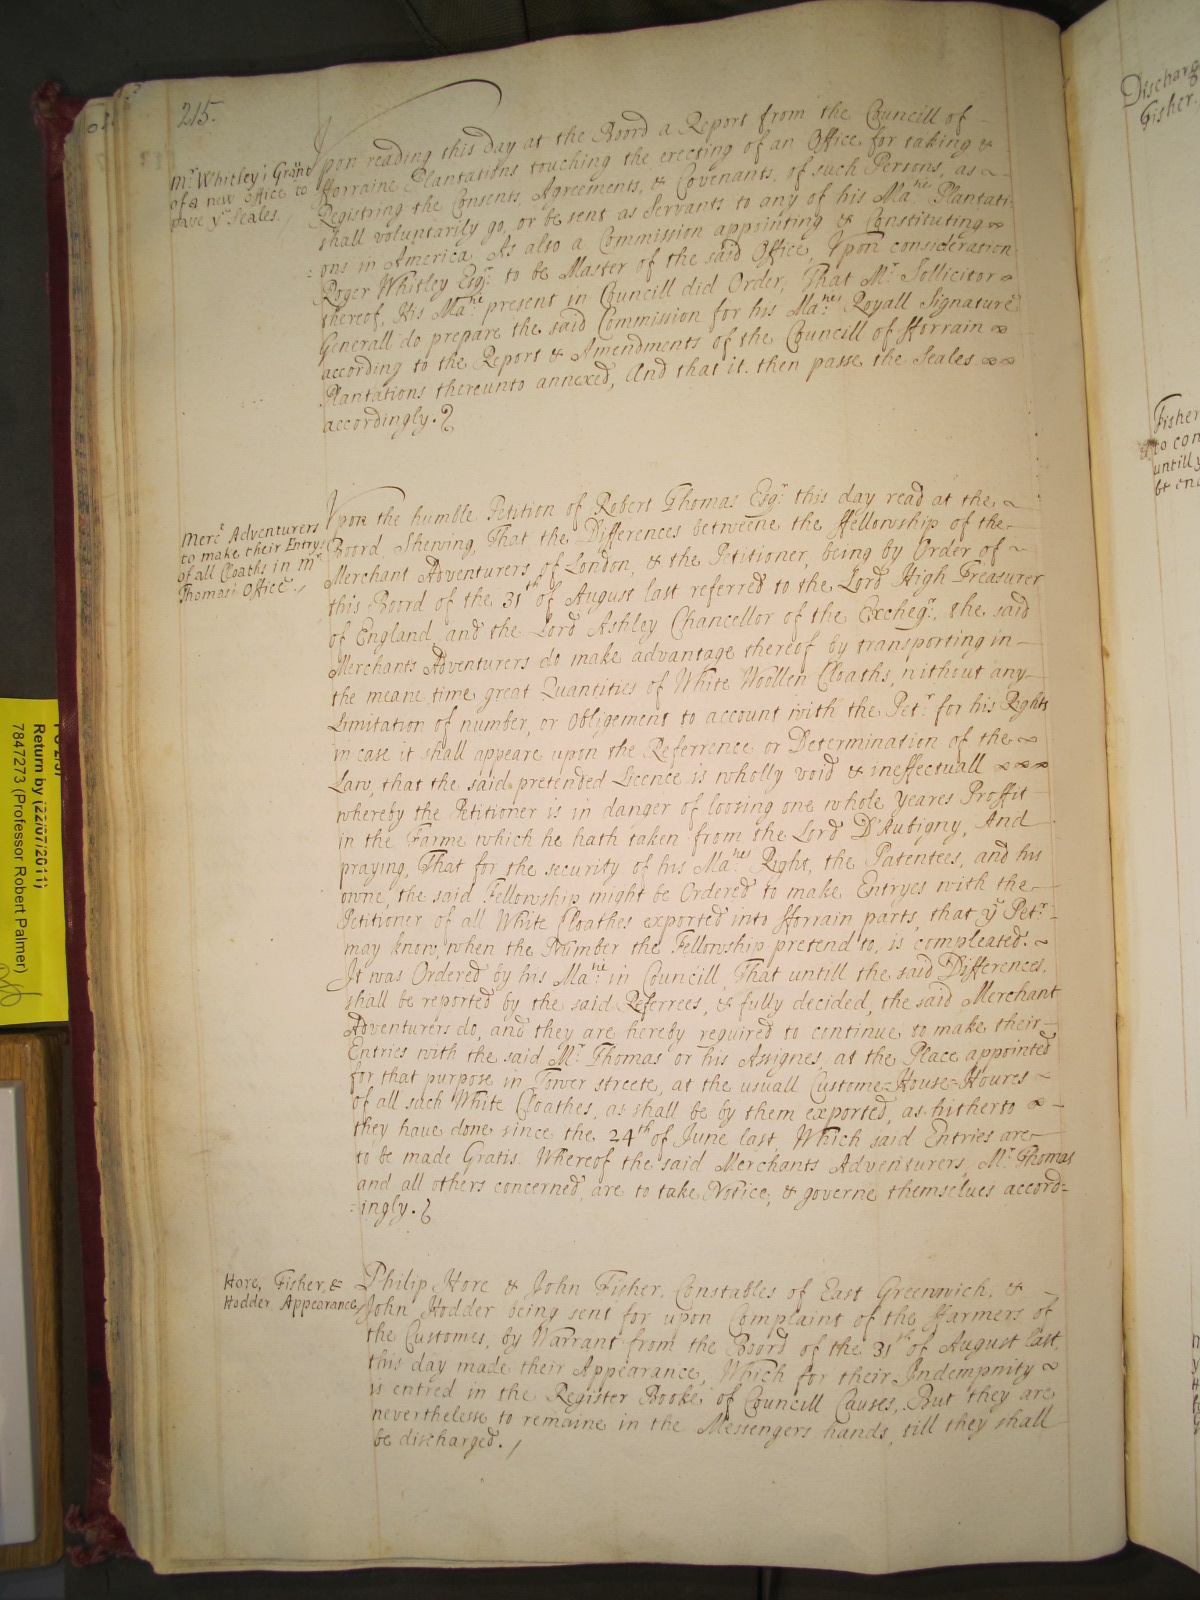 215.
Mr. Whitley's Grant
of a new office to
passe ye Seales.
Upon reading this day at the Board a Report from the Councill of
fforraine Plantations touching the erecting of an Office for taking &
Registring the Consents, Agreements, & Covenants, of such Persons, as
shall voluntarily go, or be sent as Servants to any of his Matie Plantati-
ons in America As also a Commission appointing & Constituting
Roger Whitley Esqr. to be Master of the said Office, Upon consideration
thereof, His Matie present in Councill did Order, That Mr. Sollicitor
Generall do prepare the said Commission for his Maties Royall Signature
according to the Report & Amendments of the Councill of fforrain
Plantations thereunto annexed, And that it then passe the Seales
accordingly.
Mercht Adventurers
to make their Entrys
of all Cloaths in Mr.
Thomas's Office.
Upon the humble Petition of Robert Thomas Esqr. this day read at the
Board, Shewing, That the Differences betweene the ffellowship of the
Merchant Adventurers of London, & the Petitioner, being by Order of
this Board of the 31th of August last referred to the Lord High Treasurer
of England, and the Lord Ashley Chancellor of the Excheqr., the said
Merchants Adventurers do make advantage thereof by transporting in
the meane time great Quantities of White Woollen Cloaths, without any
Limitation of number, or Obligement to account with the Petr. for his Rights
in case it shall appeare upon the Referrence or Determination of the
Law, that the said pretended Licence is wholly void & ineffectuall
whereby the Petitioner is in danger of loosing one whole yeares Proffit
in the Farme which he hath taken from the Lord D'Aubigny, And
praying, That for the security of his Maties Right, the Patentees, and his
owne, the said Fellowship might be Ordered to make Entryes with the
Petitioner of all White Cloathes exported into fforrain parts, that ye Petr.
may know, when the Number the Fellowship pretend to, is compleated.
It was Ordered by his Matie in Councill, That untill the said Differences,
shall be reported by the said Referrees, & fully decided, the said Merchant
Adventurers do, and they are hereby required to continue to make their
Entries with the said Mr. Thomas or his Assignes, at the Place appointed
for that purpose in Tower streete, at the usuall Custome-House-Houres
of all such White Cloathes, as shall be by them exported, as hitherto
they have done since the 24th of June last, Which said Entries are
to be made Gratis. Whereof the said Merchants Adventurers, Mr. Thomas
and all others concerned, are to take Notice, & governe themselves accord-
ingly.
Hore, Fisher, &
Hodder Appearance
Philip Hore & John Fisher, Constables of East Greenwich, &
John Hodder being sent for upon Complaint of the ffarmers of
the Customes, by Warrant from the Board of the 31th of August last,
this day made their Appearance, Which for their Indempnity
is entred in the Register Booke of Councill Causes, But they are
nevertheless to remaine in the Messengers hands, till they shall
be discharged.
Discharg
Fisher
Fisher
to con
untill y
be en
Return by (22/07/2011)
7847273 (Professor Robert Palmer)